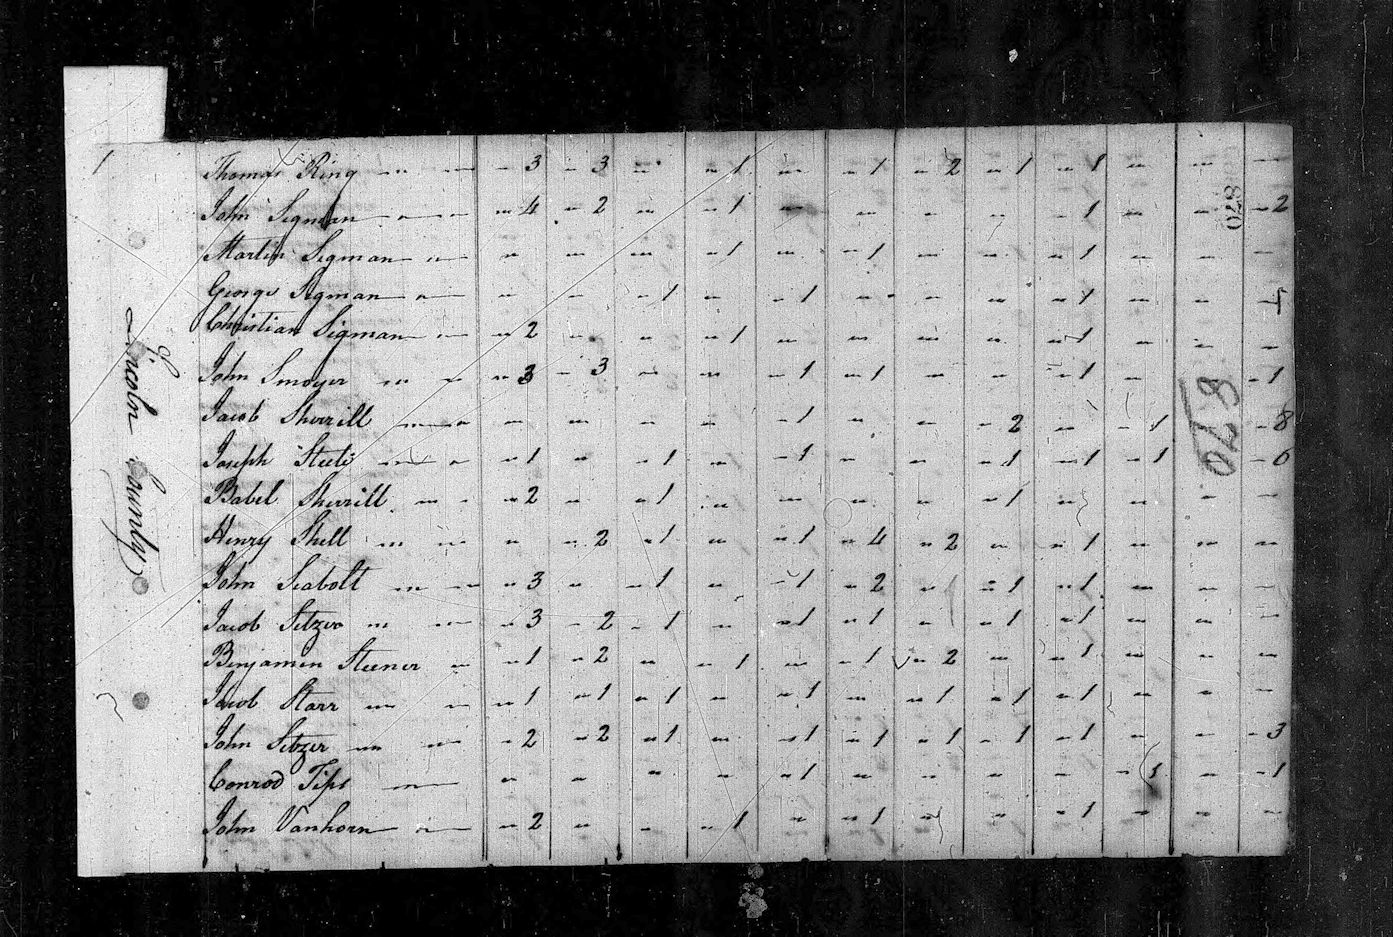 1
Thomas Ring 〃 〃 〃 3 〃 3 〃 〃 1 〃 〃 1 〃 2 〃 1 〃 1 〃 〃 〃
John Sigman 〃 〃 〃 4 〃 2 〃 〃 1 〃 〃 〃 〃 〃 1 〃 〃 〃 2
Martin Sigman 〃 〃 〃 〃 〃 1 〃 〃 1 〃 〃 〃 1 〃 〃 〃
George Sigman 〃 〃 〃 〃 1 〃 〃 1 〃 〃 〃 〃 1 〃 〃
Christian Sigman 〃 〃 2 〃 〃 〃 1 〃 〃 〃 〃 〃 1 〃 〃 〃
John Smoyer 〃 〃 〃 3 〃 3 〃 〃 〃 1 〃 1 〃 〃 〃 1 〃 〃 1
Jacob Sherrill 〃 〃 〃 〃 〃 〃 〃 1 〃 〃 〃 2 〃 〃 1 〃 8
Joseph Steele 〃 〃 〃 1 〃 〃 1 〃 〃 1 〃 〃 〃 1 〃 1 〃 1 〃 6
Babel Sherrill 〃 〃 〃 2 〃 〃 1 〃 〃 〃 〃 〃 1 〃 〃 〃 〃
Henry Shell 〃 〃 〃 〃 2 〃 1 〃 〃 1 〃 4 〃 2 〃 〃 1 〃 〃 〃
John Seabolt 〃 〃 〃 3 〃 〃 1 〃 〃 1 〃 2 〃 〃 1 〃 1 〃 〃 〃
Jacob Setzer 〃 〃 〃 3 〃 2 〃 1 〃 〃 1 〃 1 〃 〃 1 〃 1 〃 〃 〃
Benjamin Steener 〃 〃 1 〃 2 〃 〃 1 〃 〃 1 〃 2 〃 〃 1 〃 〃 〃
Jacob Starr 〃 〃 〃 1 〃 1 〃 1 〃 〃 1 〃 〃 1 〃 1 〃 1 〃 〃 〃
John Setzer 〃 〃 〃 2 〃 2 〃 1 〃 〃 1 〃 1 〃 1 〃 1 〃 1 〃 〃 〃 3
Conrod Tips 〃 〃 〃 〃 〃 〃 1 〃 〃 〃 〃 〃 1 〃 〃 1
John Vanhorn 〃 〃 2 〃 〃 〃 1 〃 〃 1 〃 〃 〃 1 〃 〃 〃
Lincoln County
870
870